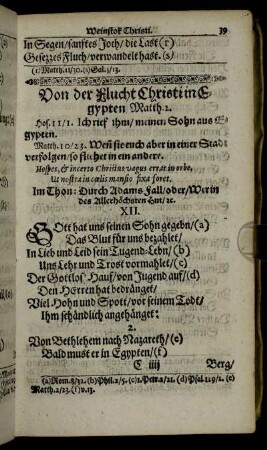 Weinstok Christi. 39
In Segen/sanftes Joch/ die Last (r)
Gesetzes Fluch/verwandelt hast. (s)
(r) Matth. 11/30. (s) Gal. 3/13.
Von der Flucht Christi in E-
gypten Matth. 2.
Hos. 11/1. Ich rief ihm/ meinen Sohn aus E-
gypten.
Matth. 10/23. Weñ sie euch aber in einer Stadt
verfolgen/ so fliehet in ein andere.
Hospes, & incerto Christus vagus errat in orbe,
Ut nostra in cœlis mansio fixa foret.
Im Thon: Durch Adams Fall/oder/Wer in
des Allerhöchsten Hut/ ꝛc.
XII.
GOtt hat uns seinen Sohn gegebn/(a)
Das Blut für uns bezahlet/
In Lieb und Leid sein Tugend-Lebn/(b)
Uns Lehr und Trost vormahlet/(c)
Der Gottlos' Hauf/von Jugend auf/(d)
Den HErren hat bedränget/
Viel Hohn und Spott/vor seinem Todt/
Ihm schändlich angehänget:
2.
Von Bethlehem nach Nazareth/(e)
Bald must er in Egypten/(f)
E iiij Berg/
(a) Rom. 8/32. (b) Phil. 2/5. (c) 1. Petr. 2/21. (d) Psal. 129/1. (e)
Matth. 2/23. (f) v. 13.